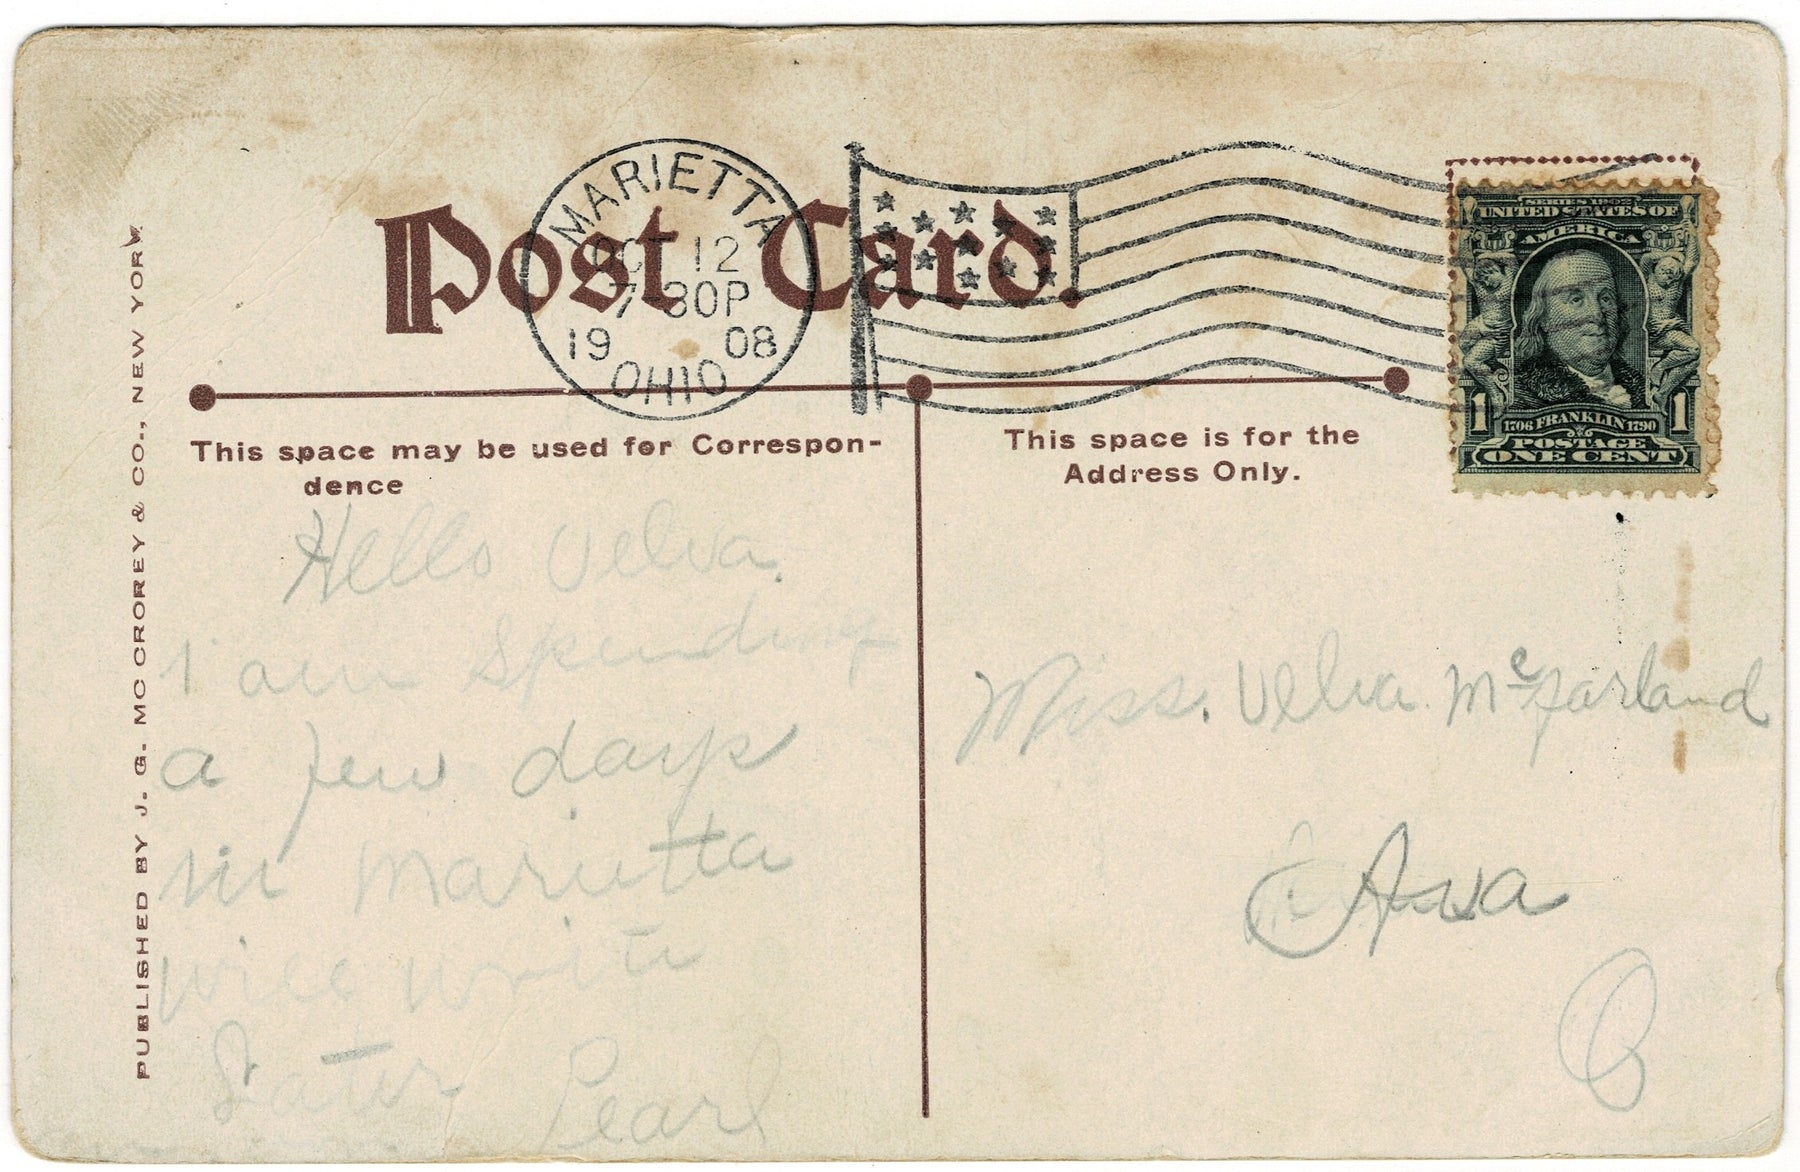 Post Card.
MARIETTA
OCT 12
7-30P
19 08
OHIO
SERIES 1902
UNITED STATES OF
AMERICA
1 1
1706 FRANKLIN 1790
POSTAGE
ONE CENT
This space may be used for Correspon-
dence
This space is for the
Address Only.
PUBLISHED BY J. G. MC CROREY & CO., NEW YORK
Hello Velva.
I am spending
a few days
in Marietta
will write
Later Pearl
Miss. Velva McFarland
Ava
O